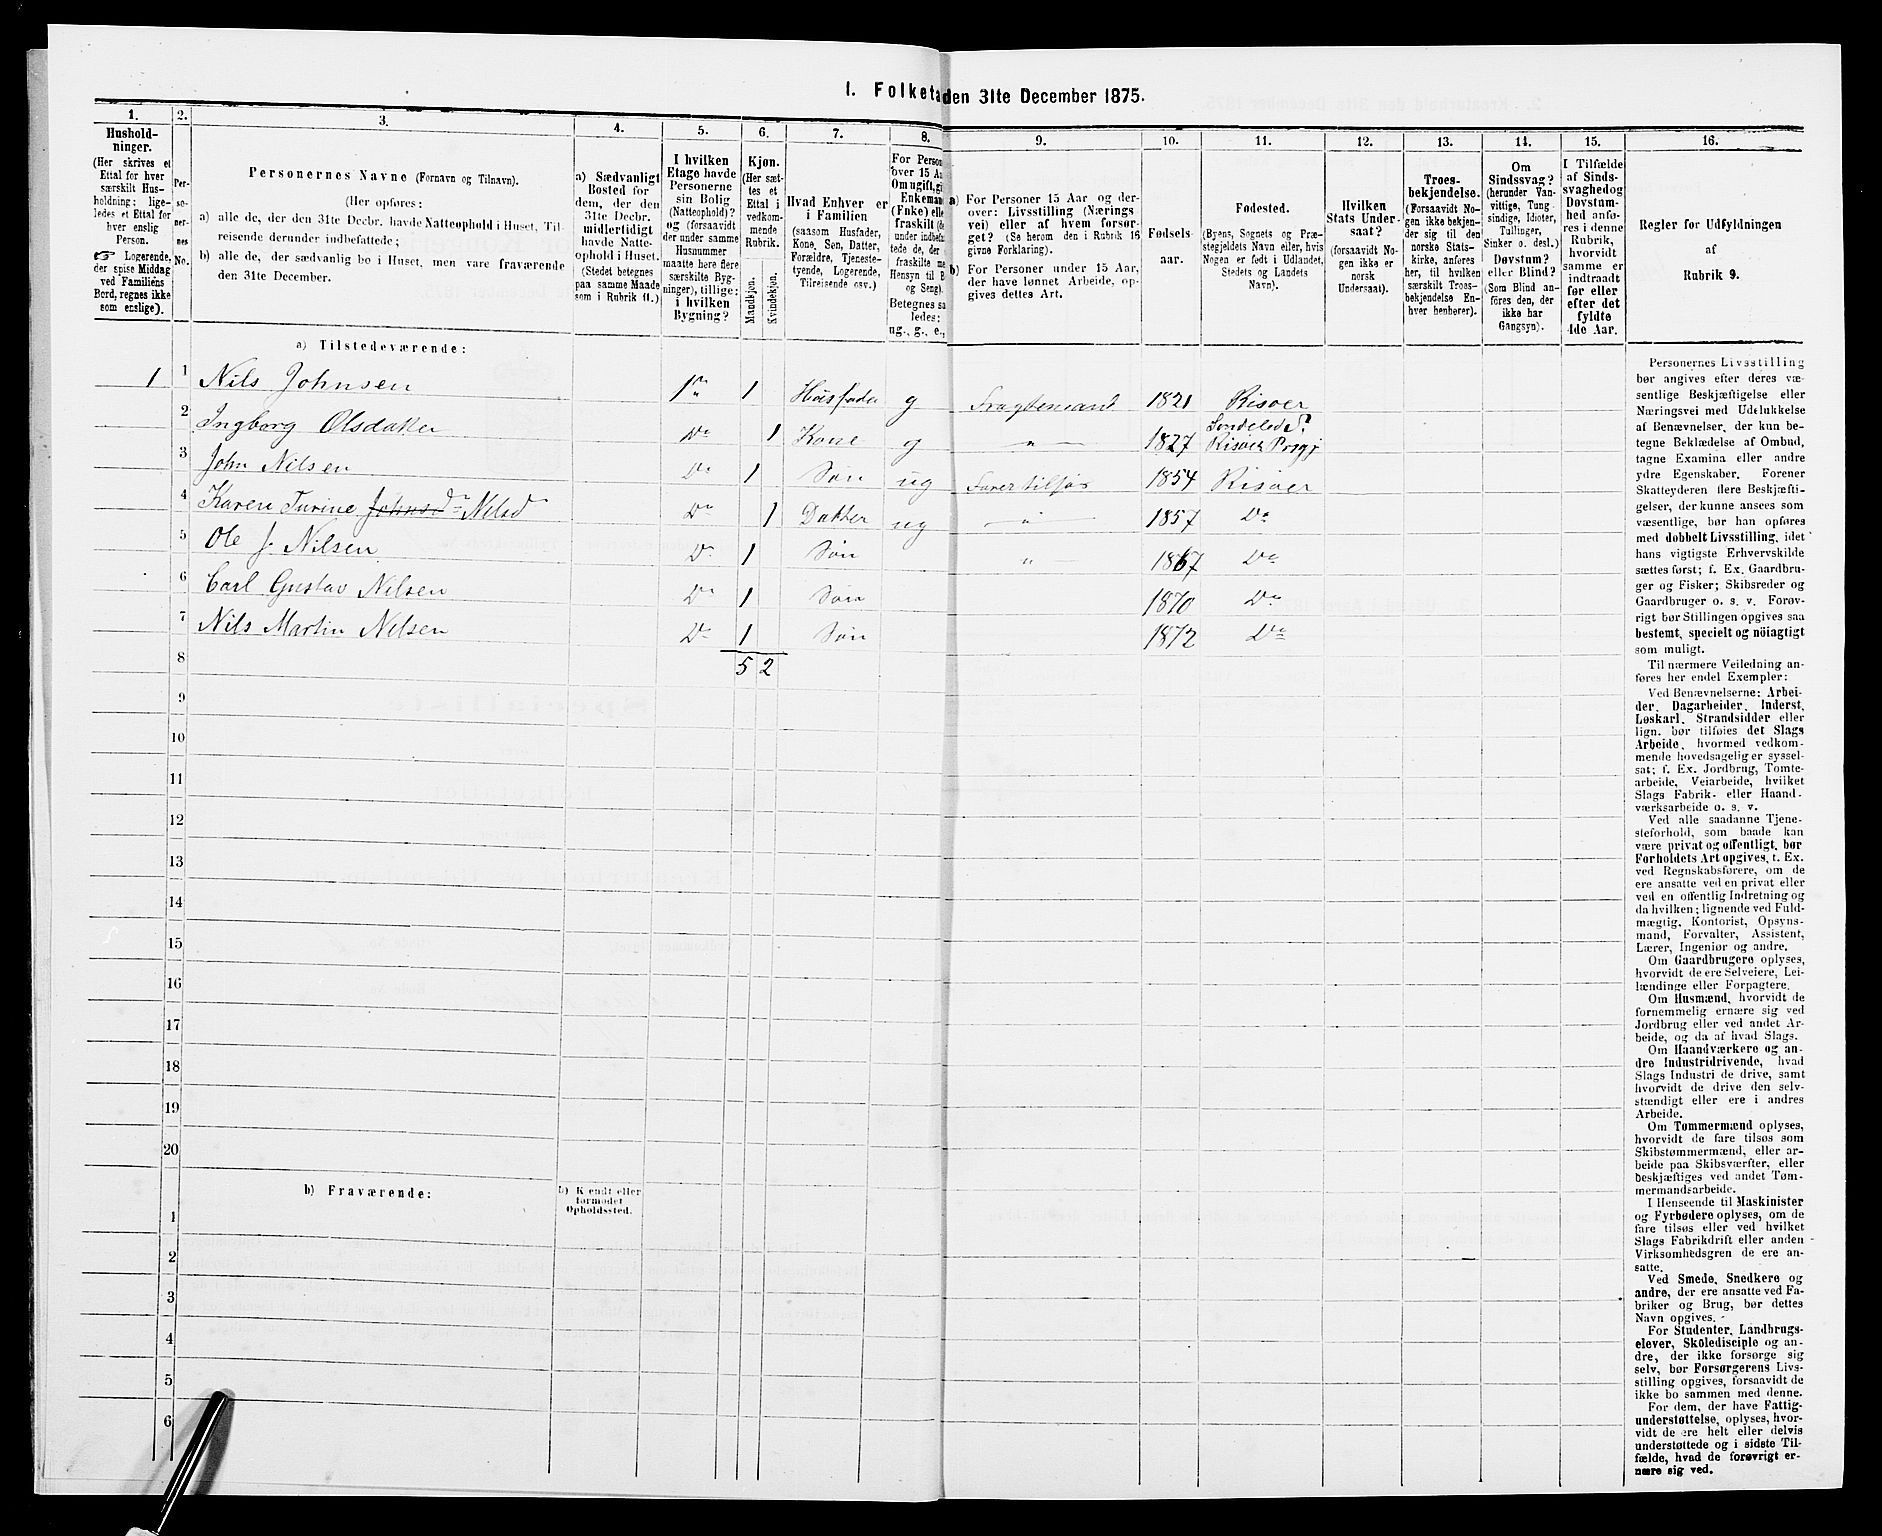 1. Folketa den 31te December 1875.
1. 2. 3. 4. 5. 6. 7. 8. 9. 10. 11. 12. 13. 14. 15. 16.
Hushold-
ninger.
(Her skrives et
Ettal for hver
særskilt Hus-
holdning; lige-
ledes et Ettal for
hver enslig
Person.
☞ Logerende,
der spise Middag
ved Familiens
Bord, regnes ikke
som enslige).
Per-
so-
ner-
nes
No.
Personernes Navne (Fornavn og Tilnavn).
(Her opføres:
a) alle de, der den 31te Decbr. havde Natteophold i Huset, Til-
reisende derunder indbefattede;
b) alle de, der sædvanlig bo i Huset, men vare fraværende
den 31te December.
a) Sædvanligt
Bosted for
dem, der den
31te Decbr.
midlertidigt
havde Natte-
ophold i Huset.
(Stedet betegnes
paa samme Maade
som i Rubrik 11.)
I hvilken
Etage havde
Personerne
sin Bolig
(Natteophold)?
og (forsaavidt
der under samme
Husnummer
maatte høre flere
særskilte Byg-
ninger), tillige:
i hvilken
Bygning?
Kjøn.
(Her sæt-
tes et
Ettal i
vedkom-
mende
Rubrik.
Mandkjøn.
Kvindekjøn.
Hvad Enhver er
i Familien
(saasom Husfader,
Kone, Søn, Datter,
Forældre, Tjeneste-
tyende, Logerende,
Tilreisende osv.)
For Person
over 15 Aa
Om ugift, gi
Enkeman
(Enke) elle
fraskilt (de
under indbefa
tede de, der
fraskilte me
Hensyn til B
og Seng).
Betegnes sa
ledes:
ug., g., e.,
a) For Personer 15 Aar og der-
over: Livsstilling (Nærings
vei) eller af hvem forsør-
get? (Se herom den i Rubrik 16
givne Forklaring).
b) For Personer under 15 Aar,
der have lønnet Arbeide, op-
gives dettes Art.
Fødsels-
aar.
Fødested.
(Byens, Sognets og Præ-
stegjeldets Navn eller, hvis
Nogen er født i Udlandet,
Stedets og Landets
Navn).
Hvilken
Stats Under-
saat?
(forsaavidt No-
gen ikke er
norsk
Undersaat).
Troes-
bekjendelse.
(Forsaavidt No-
gen ikke bekjen-
der sig til den
norske Stats-
kirke, anføres
her, til hvilken
særskilt Troes-
bekjendelse En-
hver henhører).
Om
Sindssvag?
(herunder Van-
vittige, Tung
sindige, Idioter,
Tullinger,
Sinker o. desl.)
Døvstum?
eller Blind?
(Som Blind an-
føres den, der
ikke har
Gangsyn).
I Tilfælde
af Sinds-
svaghed og
Døvstum-
hed anfø-
res i denne
Rubrik,
hvorvidt
samme er
indtraadt
før eller
efter det
fyldte
4de Aar.
Regler for Udfyldningen
af
Rubrik 9.
a) Tilstedeværende:
1 1 Nils Johnsen 1ste 1 Husfader g Fragtemand 1821 Risøer
2 Ingborg Olsdatter Do 1 Kone g " 1827 Søndeled S. Risøer Prgj
3 John Nilsen Do 1 Søn ug 1854 Risøer
4 Karen Turine Johnsd Nilsd Do 1 Datter ug " 1857 Do
5 Ole J. Nilsen Do 1 Søn " 1867 Do
6 Carl Gustav Nilsen Do 1 Søn 1870 Do
7 Nils Martin Nilsen Do 1 Søn 1872 Do
8 5 2
9
10
11
12
13
14
15
16
17
18
19
20
b) Fraværende:
b) Kjendt eller
formodet
Opholdssted.
1
2
3
4
5
6
Personernes Livsstilling
bør angives efter deres væ-
sentlige Beskjæftigelse eller
Næringsvei med Udelukkelse
af Benævnelser, der kun be-
tegne Beklædelse af Ombud,
tagne Examina eller andre
ydre Egenskaber. Forener
Skatteyderen flere Beskjæfti-
gelser, der kunne ansees som
væsentlige, bør han opføres
med dobbelt Livsstilling, idet
hans vigtigste Erhvervskilde
sættes først; f. Ex. Gaardbru-
ger og Fisker; Skibsreder og
Gaardbruger o. s. v. Forøv-
rigt bør Stillingen opgives saa
bestemt, specielt og nöiagtigt
som muligt.
Til nærmere Veiledning an-
føres her endel Exempler:
Ved Benævnelserne: Arbei-
der, Dagarbeider, Inderst,
Løskarl, Strandsidder eller
lign. bør tilføies det Slags
Arbeide, hvormed vedkom-
mende hovedsagelig er syssel-
sat; f. Ex. Jordbrug, Tomte-
arbeide, Veiarbeide, hvilket
Slags Fabrik- eller Haand-
værksarbeide o. s. v.
Ved alle saadanne Tjene-
steforhold, som baade kan
være privat og offentligt, bør
Forholdets Art opgives, t. Ex.
ved Regnskabsførere, om de
ere ansatte ved en privat eller
ved en offentlig Indretning og
da hvilken; lignende ved Fuld-
mægtig, Kontorist, Opsyns-
mand, Forvalter, Assistent,
Lærer, Ingeniør og andre.
Om Gaardbrugere oplyses,
hvorvidt de ere Selveiere, Lei-
lændinge eller Forpagtere.
Om Husmænd, hvorvidt de
fornemmelig ernære sig ved
Jordbrug eller ved andet Ar-
beide, og da af hvad Slags.
Om Haandværkere og an-
dre Industridrivende, hvad
Slags Industri de drive, samt
hvorvidt de drive den selv-
stændigt eller ere i andres
Arbeide.
Om Tømmermænd oplyses,
hvorvidt de fare tilsøs som
Skibstømmermænd, eller ar-
beide paa Skibsværfter, eller
beskjæftiges ved andet Tøm-
mermandsarbeide.
I Henseende til Maskinister
og Fyrbødere oplyses, om de
fare tilsøs eller ved hvilket
Slags Fabrikdrift eller anden
Virksomhedsgren de ere an-
satte.
Ved Smede, Snedkere og
andre, der ere ansatte ved Fa-
briker og Brug, bør dettes
Navn opgives.
For Studenter, Landbrugs-
elever, Skoledisciple og an-
dre, der ikke forsørge sig
selv, bør Forsørgerens Livs-
stilling opgives, forsaavidt de
ikke bo sammen med denne.
For dem, der have Fattig-
understøttelse, oplyses, hvor-
vidt de ere helt eller delvis
understøttede og i sidste Til-
fælde, hvad de forøvrigt er-
nære sig ved.